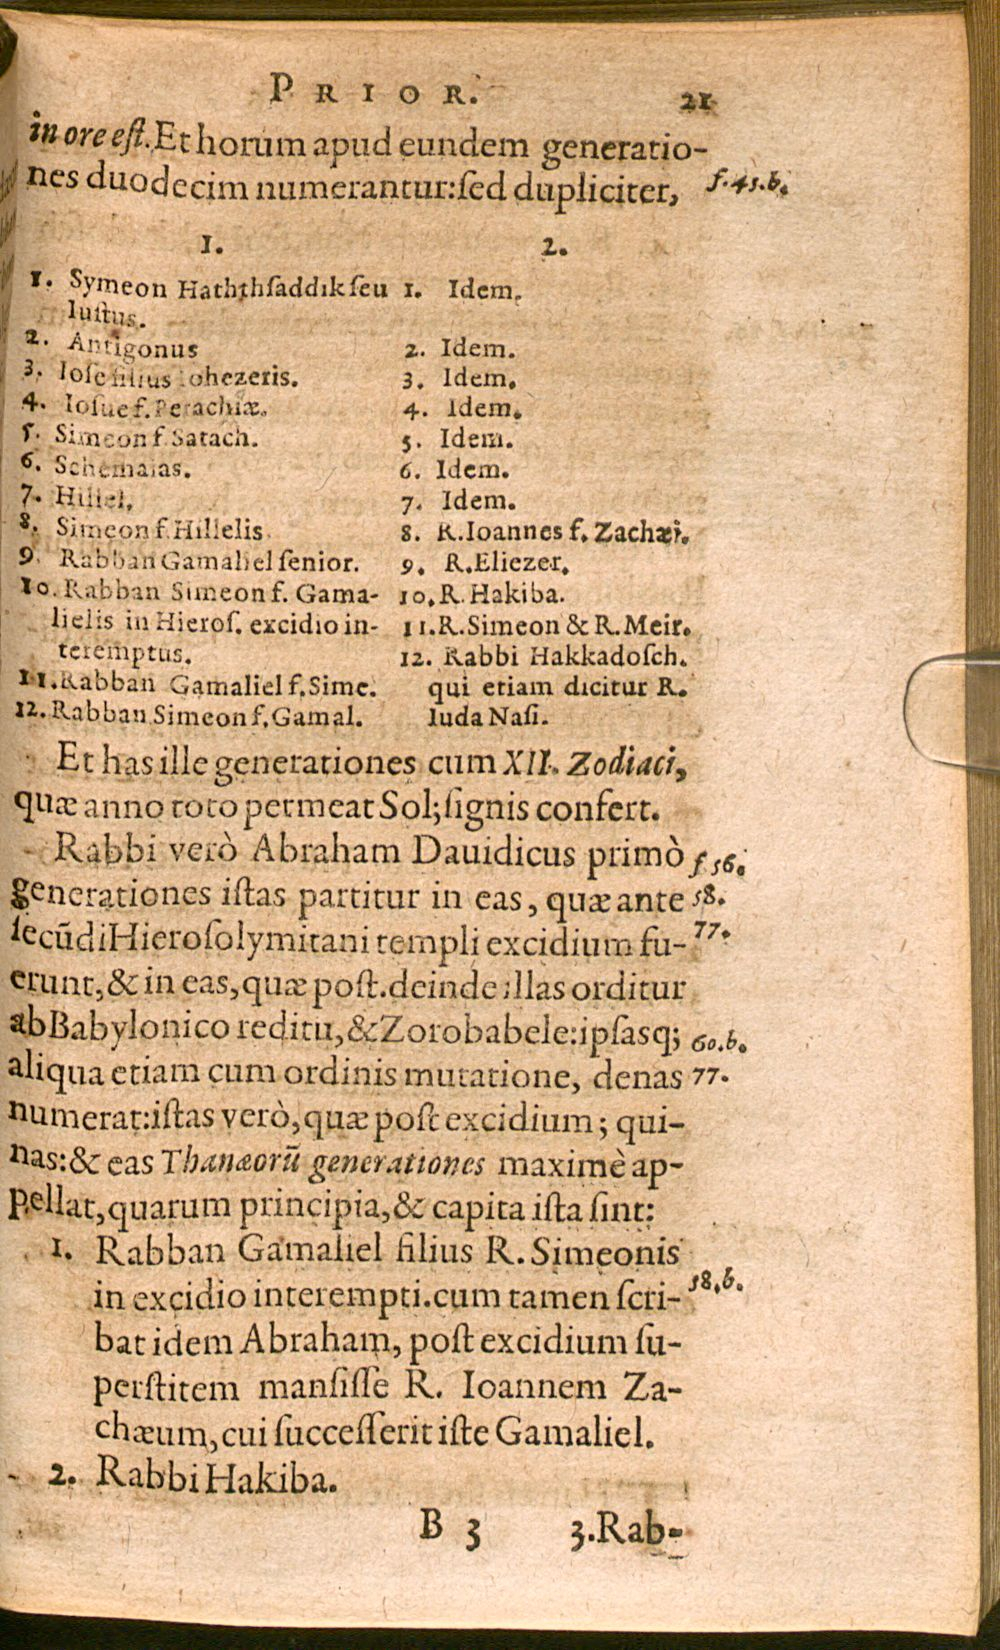 PRIOR. 21
in ore est. Et horum apud eundem generatio-
nes duodecim numerantur: sed dupliciter, f. 45. b.
1.
1. Symeon Haththsaddik seu
Iustus.
2. Antigonus
3. Iose filius Iohezeris.
4. Iosue f. Perachiæ.
5. Simeon f. Satach.
6. Schemaias.
7. Hillel.
8. Simeon f. Hillelis.
9. Rabban Gamaliel senior.
10. Rabban Simeon f. Gama-
lielis in Hieros. excidio in-
teremptus.
11. Rabban Gamaliel f. Sime.
12. Rabban Simeon f. Gamal.
2.
1. Idem.
2. Idem.
3. Idem.
4. Idem.
5. Idem.
6. Idem.
7. Idem.
8. R. Ioannes f. Zachæi.
9. R. Eliezer.
10. R. Hakiba.
11. R. Simeon & R. Meir.
12. Rabbi Hakkadosch.
qui etiam dicitur R.
Iuda Nasi.
Et has ille generationes cum XII. Zodiaci,
quæ anno toto permeat Sol; signis confert.
Rabbi verò Abraham Dauidicus primò f 56.
generationes istas partitur in eas, quæ ante 58.
secūdi Hierosolymitani templi excidium fu- 77.
erunt, & in eas, quæ post. deinde illas orditur
ab Babylonico reditu, & Zorobabele: ipsasq; 60. b.
aliqua etiam cum ordinis mutatione, denas 77.
numerat: istas verò, quæ post excidium; qui-
nas: & eas Thanæorū generationes maximè ap-
pellat, quarum principia, & capita ista sint:
1. Rabban Gamaliel filius R. Simeonis
in excidio interempti. cum tamen scri- 58. b.
bat idem Abraham, post excidium su-
perstitem mansisse R. Ioannem Za-
chæum, cui successerit iste Gamaliel.
2. Rabbi Hakiba.
B 3 3. Rab-